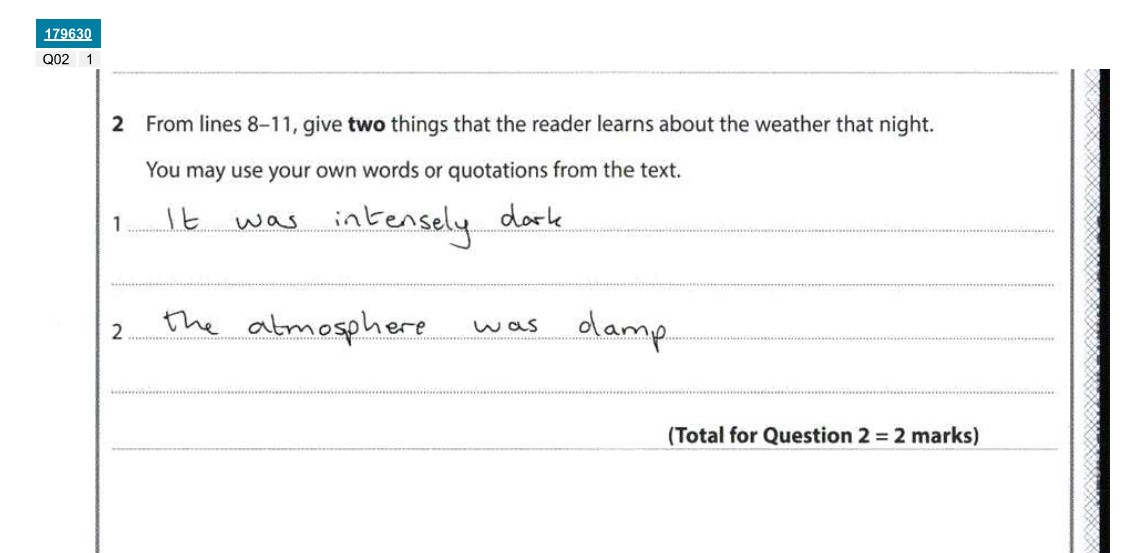 179630
Q02 1
2 From lines 8–11, give two things that the reader learns about the weather that night.
You may use your own words or quotations from the text.
1 It was intensely dark
2 the atmosphere was damp
(Total for Question 2 = 2 marks)